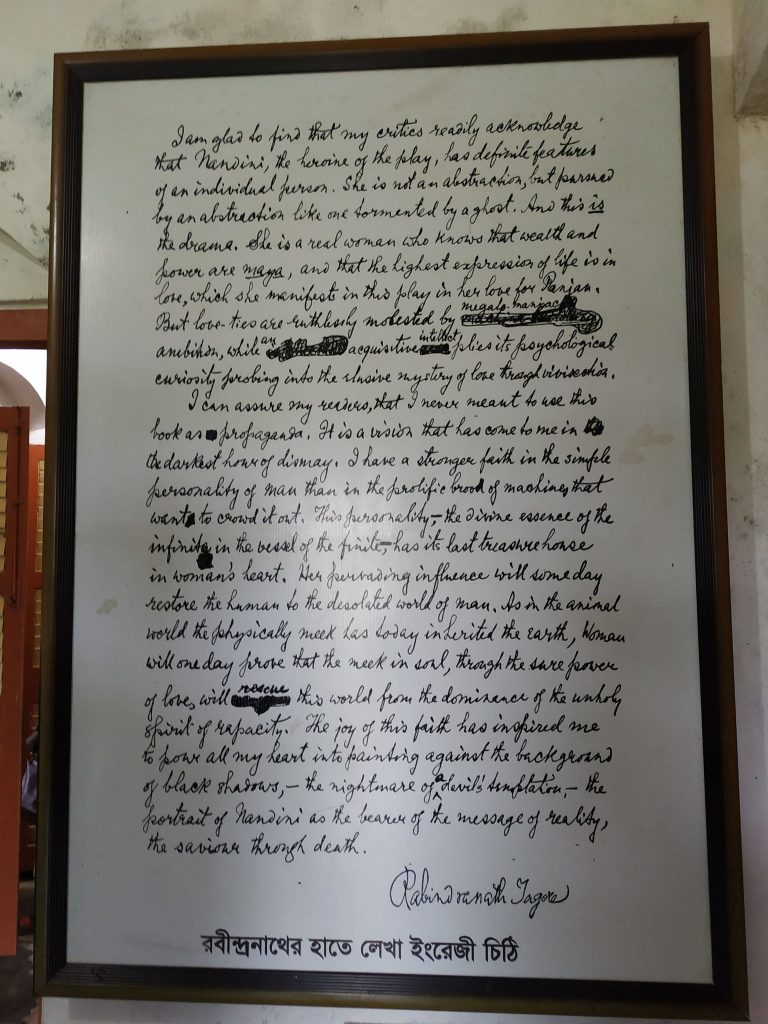 I am glad to find that my critics readily acknowledge
that Nandini, the heroine of the play, has definite features
of an individual person. She is not an abstraction, but pursued
by an abstraction like one tormented by a ghost. And this is
the drama. She is a real woman who knows that wealth and
power are maya, and that the highest expression of life is in
love, which she manifests in this play in her love for Ranjan.
But love-ties are ruthlessly molested by megalomaniac
ambition, while an acquisitive intellect plies its psychological
curiosity probing into the elusive mystery of love through vivisection.
I can assure my readers, that I never meant to use this
book as propaganda. It is a vision that has come to me in
the darkest hour of dismay. I have a stronger faith in the simple
personality of man than in the prolific brood of machines, that
want to crowd it out. This personality,— the divine essence of the
infinite in the vessel of the finite,— has its last treasure house
in woman's heart. Her pervading influence will some day
restore the human to the desolated world of man. As in the animal
world the physically meek has today inherited the Earth, Woman
will one day prove that the meek in soul, through the sure power
of love, will rescue this world from the dominance of the unholy
spirit of rapacity. The joy of this faith has inspired me
to pour all my heart into painting against the background
of black shadows,— the nightmare of a devil's temptation,— the
portrait of Nandini as the bearer of the message of reality,
the saviour through death.
Rabindranath Tagore
রবীন্দ্রনাথের হাতে লেখা ইংরেজী চিঠি